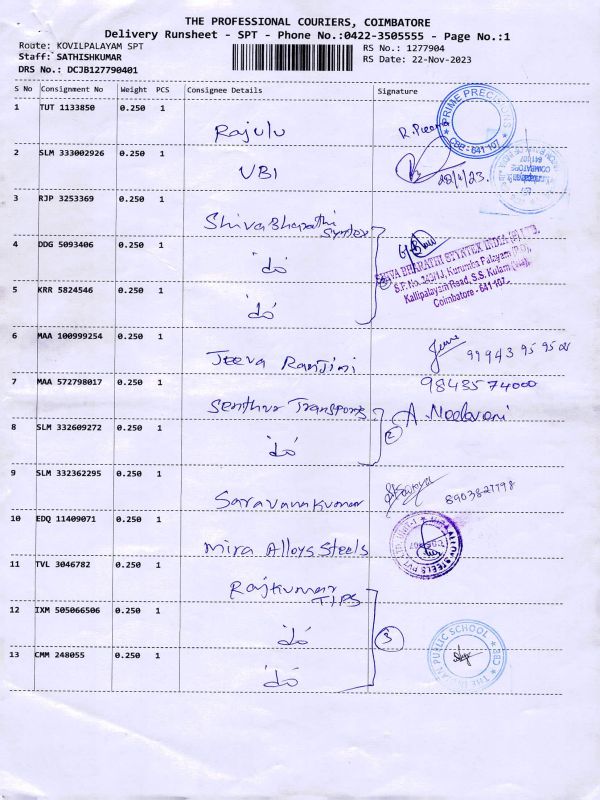 THE PROFESSIONAL COURIERS, COIMBATORE
Delivery Runsheet - SPT - Phone No.:0422-3505555 - Page No.:1
Route: KOVILPALAYAM SPT
RS No.: 1277904
Staff: SATHISHKUMAR
RS Date: 22-Nov-2023
DRS No.: DCJB127790401
S No Consignment No Weight PCS Consignee Details Signature
1 TUT 1133850 0.250 1 Rajulu
PRIME PRE CBE - 641 107
2 SLM 333002926 0.250 1 UBI
COIMBATORE 641 107
3 RJP 3253369 0.250 1 Shiva Bharathi
4 DDG 5093406 0.250 1 "do"
SHIVA BHARATHI SPYNTEX INDIA (P) LTD.
S.F. No. 243/1J, Kurumba Palayam (P.O),
Kallipalayam Road, S.S. Kulam (Via),
Coimbatore - 641 107.
5 KRR 5824546 0.250 1 "do"
6 MAA 100999254 0.250 1 Jeeva Ranjini
7 MAA 572798017 0.250 1 Senthur Transports
9843574000
8 SLM 332609272 0.250 1 "do"
2
9 SLM 332362295 0.250 1 Saravanakumar
8903827798
10 EDQ 11409071 0.250 1 Mira Alloys Steels
MIRA ALLOY STEELS PVT LTD
11 TVL 3046782 0.250 1 Rajkumar
TIPS
12 IXM 505066506 0.250 1 "do"
3
THE INDIAN PUBLIC SCHOOL CBE
13 CMM 248055 0.250 1 "do"